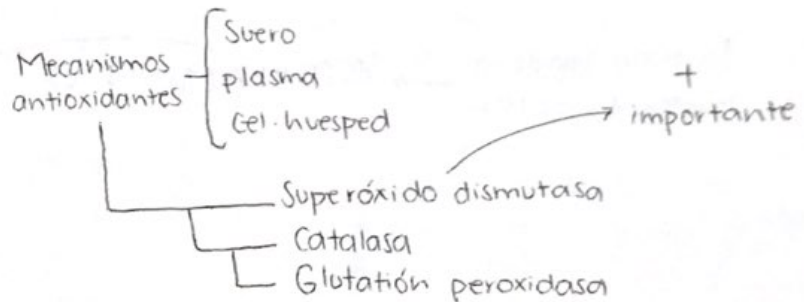 Suero
Mecanismos
antioxidantes
plasma
Cel. huesped
+
importante
Superóxido dismutasa
Catalasa
Glutatión peroxidasa